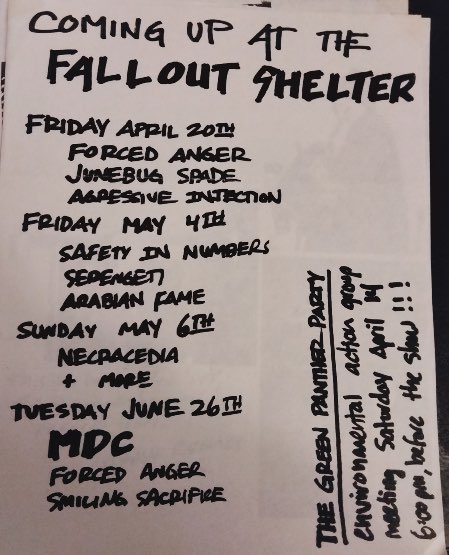 COMING UP AT THE
FALLOUT SHELTER
FRIDAY APRIL 20TH
FORCED ANGER
JUNEBUG SPADE
AGRESSIVE INJECTION
FRIDAY MAY 4TH
SAFETY IN NUMBERS
SEPENGETI
ARABIAN FAME
SUNDAY MAY 6TH
NECRACEDIA
+ MORE
TUESDAY JUNE 26TH
MDC
FORCED ANGER
SMILING SACRIFICE
THE GREEN PANTHER PARTY
environmental action group
meeting Saturday April 14
6:00 pm, before the show!!!